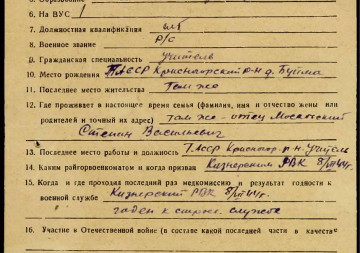 6. На ВУС
7. Должностная квалификация
8. Военное звание р/с
9. Гражданская специальность учитель
10. Место рождения ТАССР Красноборский р-н д.
11. Последнее место жительства там же
12. Где проживает в настоящее время семья (фамилия, имя и отчество жены или
родителей и точный их адрес) там же - отец
Васильевич
13. Последнее место работы и должность ТАССР р-н, учитель
14. Каким райгорвоенкоматом и когда призван Кизнерским РВК 8/VII 44 г.
15. Когда и где проходил последний раз медкомиссию и результат годности к
военной службе Кизнерский РВК 8/VII 44 г.
годен к строев. службе
16. Участие в Отечественной войне (в составе какой последней части и качестве